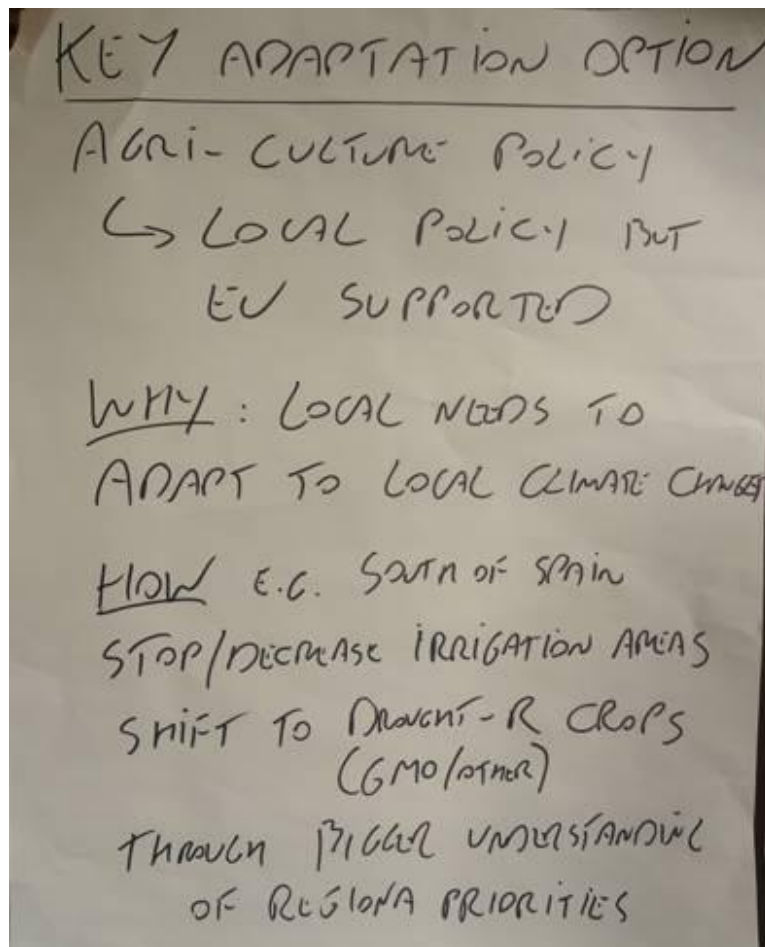 KEY ADAPTATION OPTION
AGRI- CULTURE POLICY
↳ LOCAL POLICY BUT
EU SUPPORTED
WHY: LOCAL NEEDS TO
ADAPT TO LOCAL CLIMATE CHANGES
HOW E.G. SOUTH OF SPAIN
STOP/DECREASE IRRIGATION AREAS
SHIFT TO DROUGHT-R CROPS
(GMO/OTHER)
THROUGH BIGGER UNDERSTANDING
OF REGIONA PRIORITIES